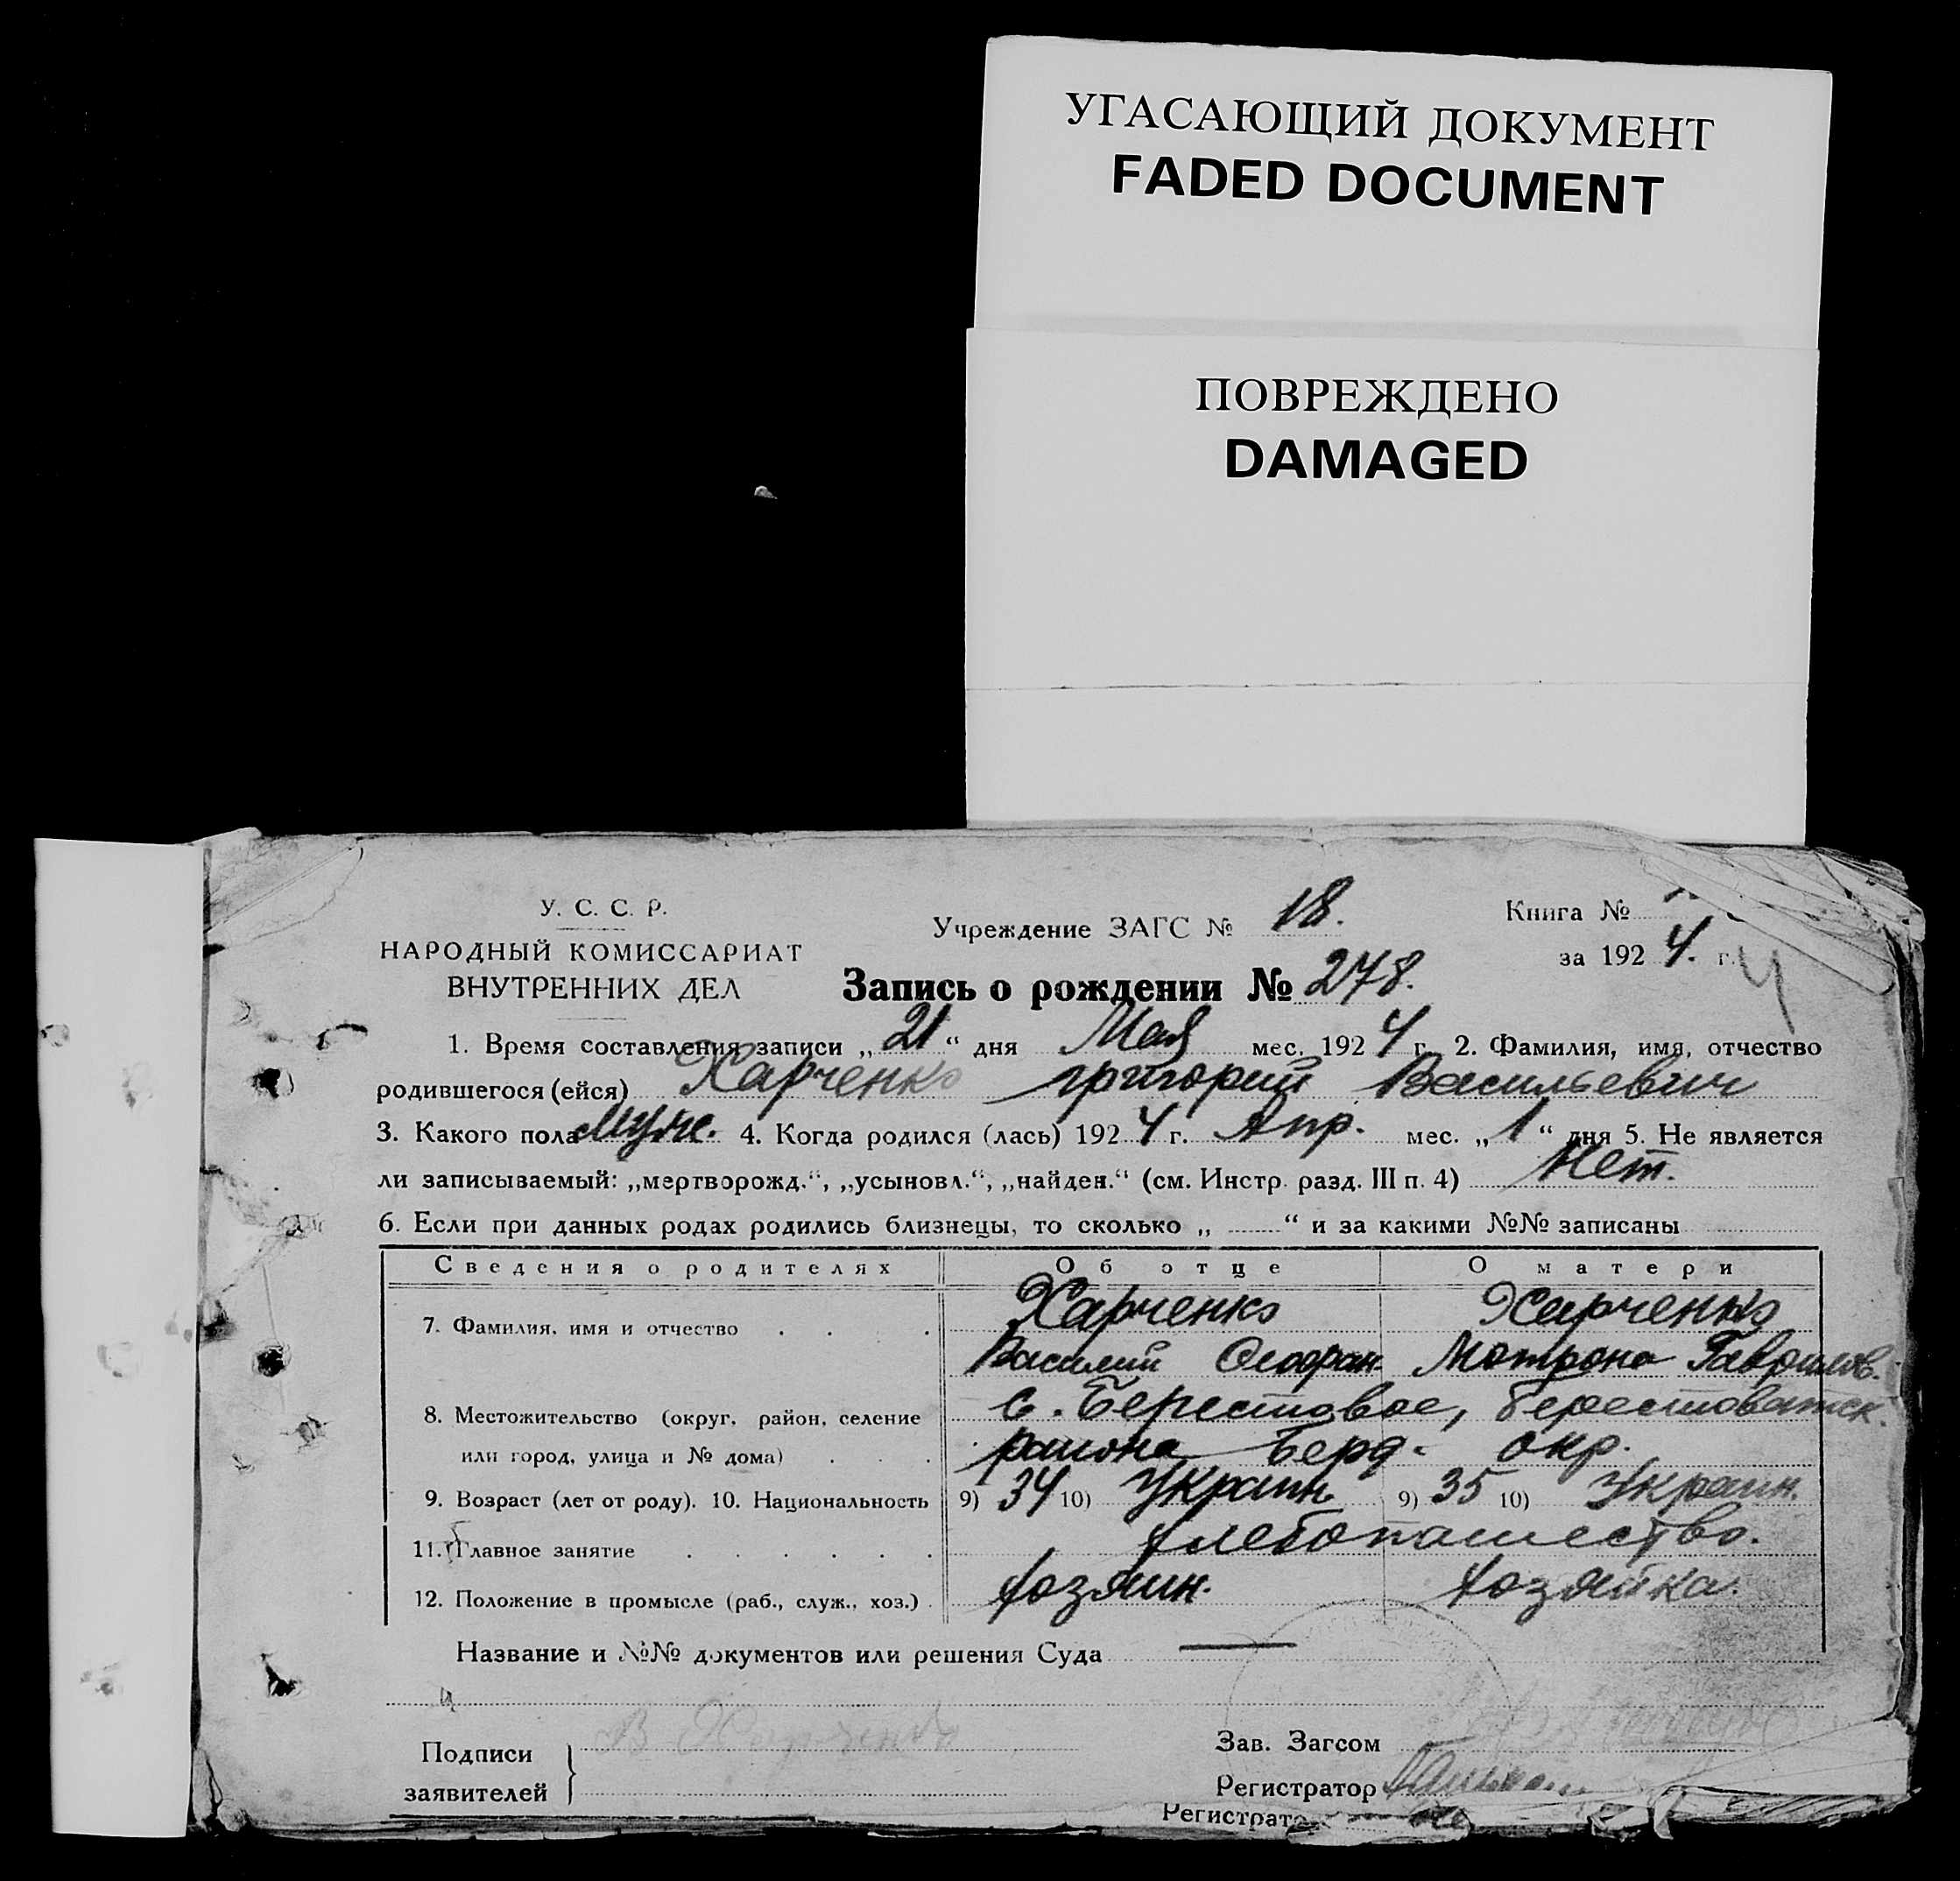 УГАСАЮЩИЙ ДОКУМЕНТ
FADED DOCUMENT
ПОВРЕЖДЕНО
DAMAGED
У. С. С. Р.
НАРОДНЫЙ КОМИССАРИАТ
ВНУТРЕННИХ ДЕЛ
Учреждение ЗАГС № 18.
Книга №
за 1924. г.
Запись о рождении № 278.
1. Время составления записи „21“ дня Мая мес. 1924 г. 2. Фамилия, имя, отчество
родившегося (ейся) Харченко григорий Васильевич
3. Какого пола муж. 4. Когда родился (лась) 1924 г. Апр. мес. „1“ дня 5. Не является
ли записываемый: „мертворожд.“, „усыновл.“, „найден.“ (см. Инстр. разд. III п. 4) Нет.
6. Если при данных родах родились близнецы, то сколько „ “ и за какими №№ записаны
Сведения о родителях Об отце О матери
7. Фамилия, имя и отчество Харченко Харченко
Василий Мотрона Гаврилов.
8. Местожительство (округ, район, селение с. Берестовое, Берестоватск.
или город, улица и № дома) района Берд. окр.
9. Возраст (лет от роду). 10. Национальность 9) 34 10) Украин. 9) 35 10) Украин.
11. Главное занятие хлебопашество.
12. Положение в промысле (раб., служ., хоз.) хозяин. хозяйка.
Название и №№ документов или решения Суда
Подписи
заявителей
В Харченко
Зав. Загсом
Регистратор
Регистрато